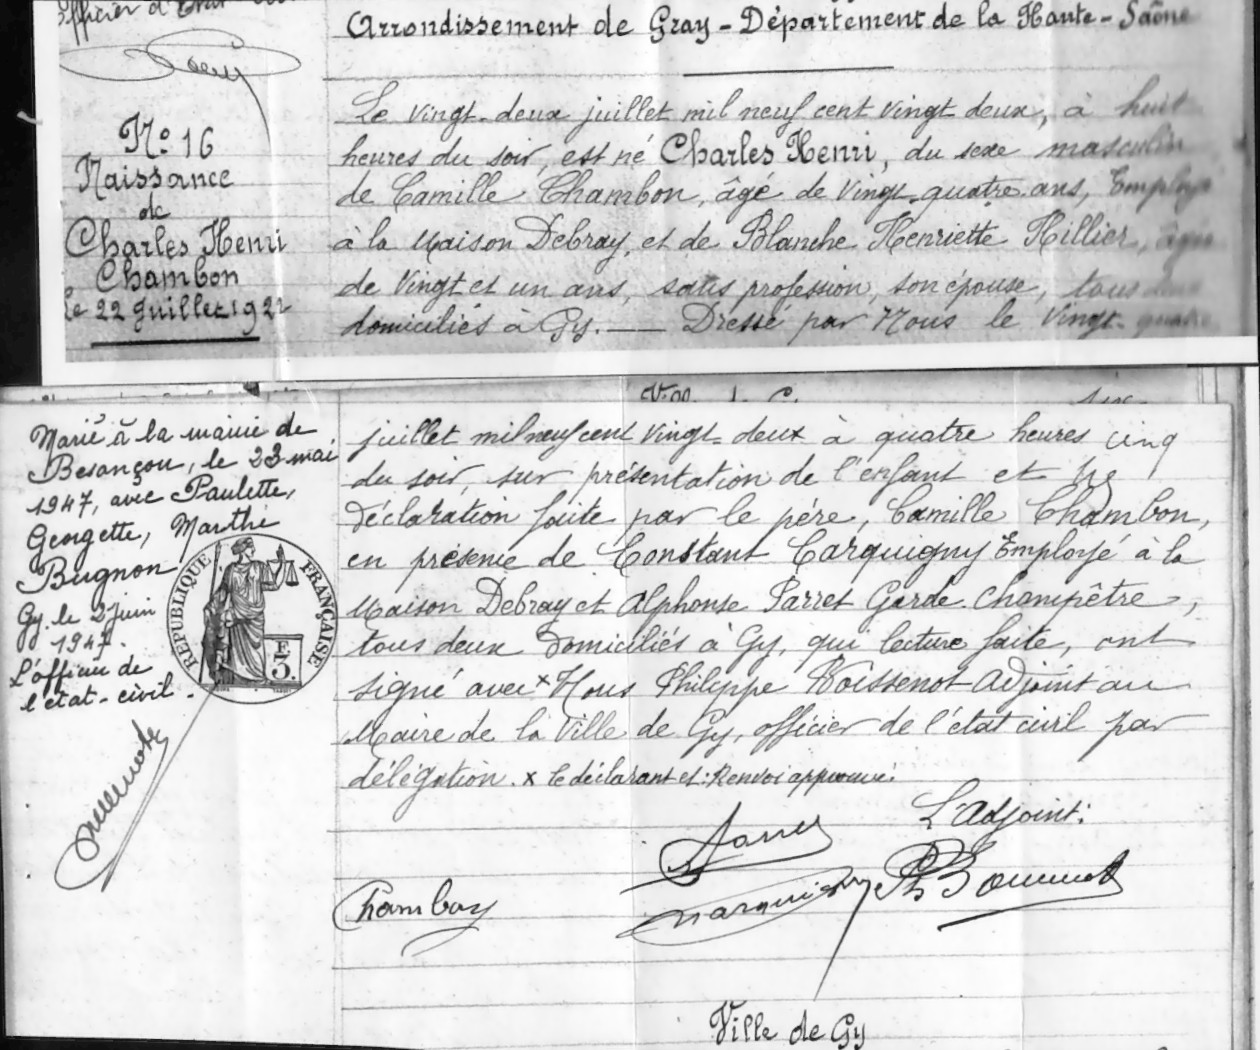 officier d'Etat
Arrondissement de Gray - Département de la Haute-Saône
Nº 16
Naissance
de
Charles Henri
Chambon
le 22 Juillet 1922
Le vingt-deux juillet mil neuf cent vingt deux, à huit
heures du soir, est né Charles Henri, du sexe masculin
de Camille Chambon, âgé de vingt-quatre ans, Employé
à la Maison Debray, et de Blanche Henriette Hillier, âgée
de vingt et un ans, sans profession, son épouse, tous deux
domiciliés à Gy. — Dressé par Nous le vingt-quatre
juillet mil neuf cent vingt-deux à quatre heures cinq
du soir, sur présentation de l'enfant et
déclaration faite par le père, Camille Chambon,
en présence de Constant Carquigny Employé à la
Maison Debray et Alphonse Parret Garde-Champêtre,
tous deux domiciliés à Gy, qui lecture faite, ont
signé avec x Nous Philippe Voissenot Adjoint au
Maire de la Ville de Gy, officier de l'état civil par
délégation. x le déclarant et: Renvoi approuvé.
Marié à la mairie de
Besançon, le 23 mai
1947, avec Paulette,
Georgette, Marthe
Bugnon
Gy, le 2 Juin
1947.
L'officier de
l'état-civil.
RÉPUBLIQUE FRANÇAISE
F
3.
L'Adjoint:
Chambon
Ville de Gy